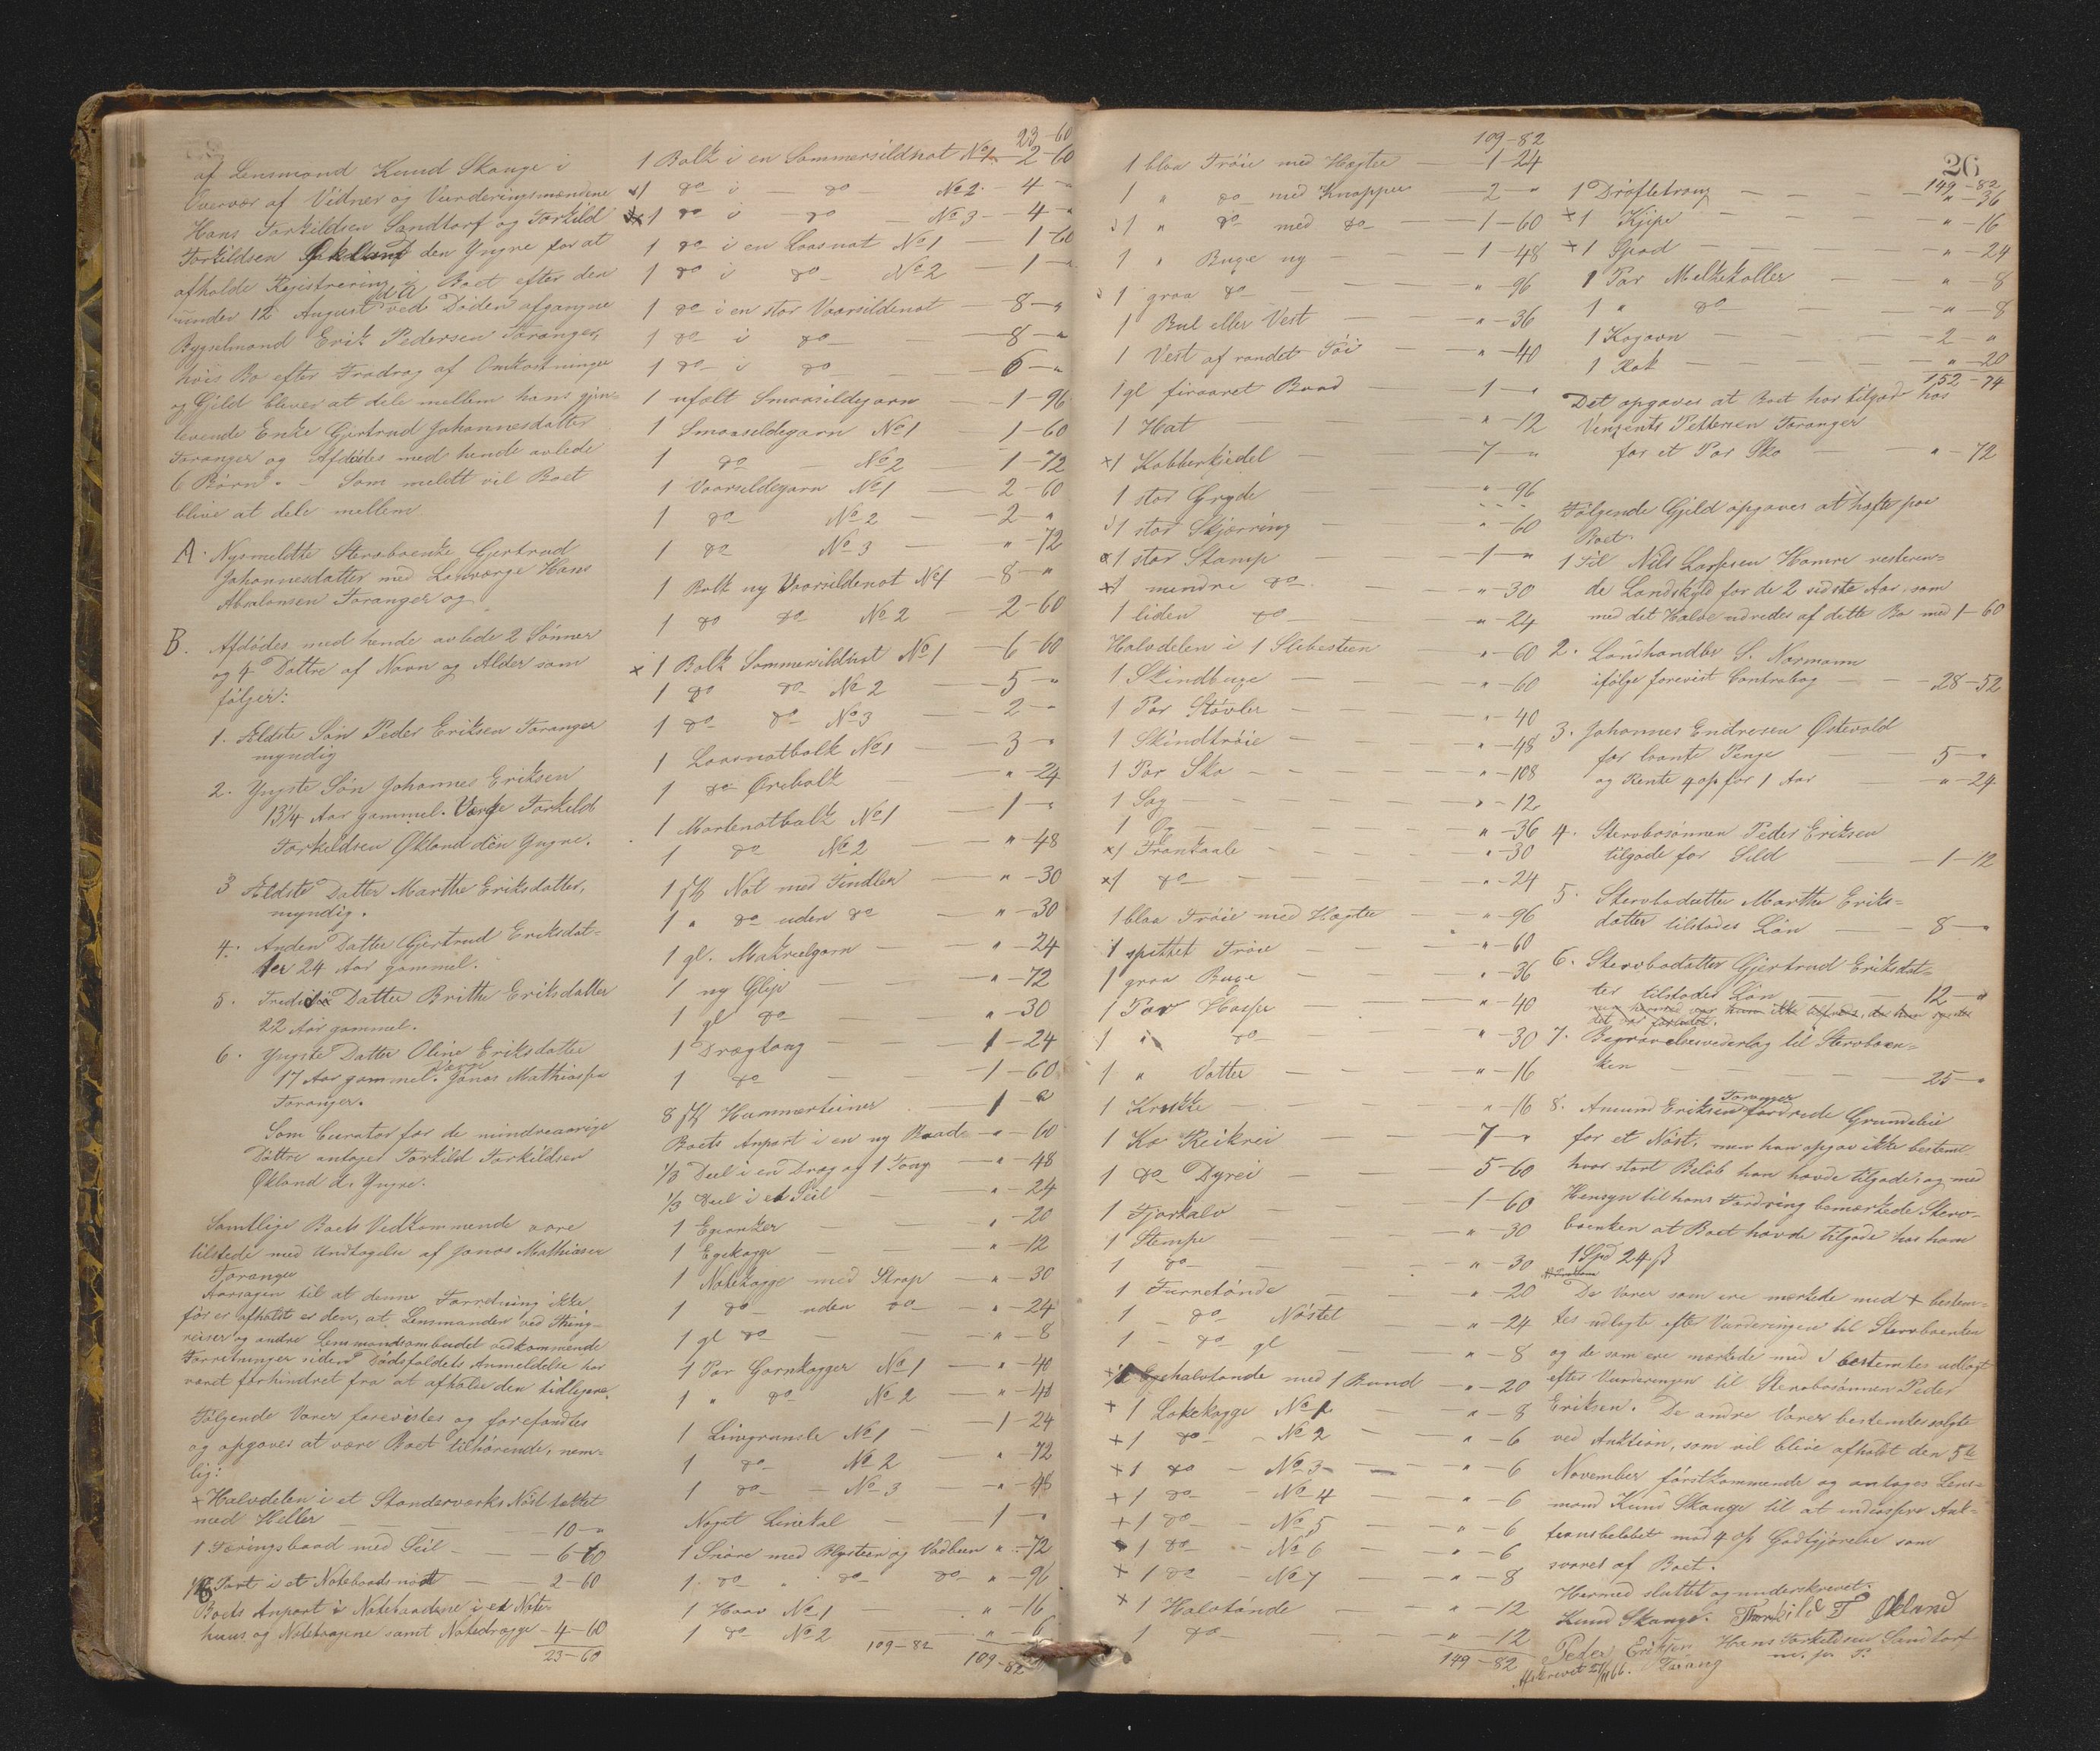 af Lensmand Knud Skauge i
Overvær af Vidner og Vurderingsmændene
Hans Torkildsen Sandtorf og Torkild
Torkildsen Økland den Yngre for at
afholde Registrering i Boet efter den
under 12 August d A ved Døden afgangne
Bygselmand Erik Pedersen Toranger,
hvis Bo efter Fradrag af Omkostninger
og Gjeld bliver at dele mellem hans gjen-
levende Enke Gjertrud Johannesdatter
Toranger og Afdødes med hende avlede
6 Børn. - Som meldt vil Boet
blive at dele mellem
A. Nysmeldte Stervboenke Gjertrud
Johannesdatter med Laugværge Hans
Absalonsen Toranger og
B. Afdødes med hende avlede 2 Sønner
og 4 Døttre af Navn og Alder som
følger:
1. Ældste Søn Peder Eriksen Toranger
myndig
2. Yngste Søn Johannes Eriksen
13 1/4 Aar gammel. Værge Torkild
Torkeldsen Økland den Yngre.
3 Ældste Datter Marthe Eriksdatter,
myndig.
4. Anden Datter Gjertrud Eriksdat-
ter 24 Aar gammel.
5. Tredie Datter Brithe Eriksdatter
22 Aar gammel.
6. Yngste Datter Oline Eriksdatter
17 Aar gammel. Værge Jonas Mathiassen
Toranger.
Som Curator for de mindreaarige
Døttre antoges Torkild Torkildsen
Økland d. Yngre.
Samtlige Boets Vedkommende vare
tilstede med Undtagelse af Jonas Mathiasen
Toranger
Aarsagen til at denne Forretning ikke
før er afholdt er den, at Lensmanden ved Thing-
reiser og andre Lensmandsombudet vedkommende
Forretninger siden Dødsfaldets Anmeldelse har
været forhindret fra at afholde den tidligere.
Følgende Varer forevistes og forefandtes
og opgaves at være Boet tilhørende, nem-
lig:
x Halvdelen i et Standerværks Nøst tækket
med Heller — 10 - "
1 Færingsbaad med Seil — 6-60
Part i et Notebaadsnøst — 2-60
Boets Anpart i Notebaadene i et Note-
huus og Notetougene samt Notedragge - 4-60
23-60
23-60
1 Bolk i en Sommersildnot No 1 - 2-60
x1 do i — do — No 2 - 4 - "
x1 do i — do — No 3 - 4 - "
1 do i en Laasnot No 1 — 1-60
1 do i do No 2 — 1 - "
1 do i en stor Vaarsildenot — 8 - "
1 do i do — 8 - "
1 do i do — 6 - "
1 ufælt Smaasildegarn — 1-96
1 Smaasildegarn No 1 — 1-60
1 do No 2 — 1-72
1 Vaarsildegarn No 1 — 2-60
1 do No 2 — 2 - "
1 do No 3 — " -72
1 Bolk ny Vaarsildenot No 1 — 8 - "
1 do do No 2 — 2-60
x 1 Bolk Sommersildnot No 1 — 6-60
1 do do No 2 — 5 - "
1 do do No 3 — 2 - "
1 Laasnotbolk No 1 — 3 - "
1 do Ørebolk — " -24
1 Mortenotbolk No 1 — 1 - "
1 do No 2 — " -48
1 Not med Tindler — " -30
1 " do uden do — " -30
1 gl. Makrelgarn — " -24
1 ny Glip — " -72
1 gl do — " -30
1 Drægtoug — 1-24
1 do — 1-60
8 Hummerteiner — 1 - "
Boets Anpart i en ny Baad — " -60
1/3 Deel i en Dræg og 1 Toug — " -48
1/3 Deel i et Seil — " -24
1 Egeanker — " -20
1 Egekagge — " -12
1 Notekagge med Strop — " -30
1 do uden do — " -24
1 gl do — " -8
1 Par Garnkagger No 1 — " -40
1 " do No 2 — " -48
1 Linegrunsle No 1 — 1-24
1 do No 2 — " -72
1 do No 3 — " -48
Noget Linekal — 1 - "
1 Snøre med Blysteen og Vadbeen " -72
1 do " do do " -96
1 Haav No 1 — " -16
1 do No 2 — " -6
109-82 109-82
109-82
1 blaa Trøie med Hægter — 1-24
1 " do med Knapper — 2 - "
1 " do med do — 1-60
1 " Buxe ny — 1-48
1 graa do — " -96
1 Bul eller Vest — " -36
1 Vest af randet Tøi — " -40
1 gl firaaret Baad — 1 - "
1 Hat — " -12
x1 Kobberkiedel — 7 - "
1 stor Gryde — " -96
1 stor Skjærring — " -60
x1 stor Stamp — 1 - "
x1 mindre do — " -30
1 liden do — " -24
Halvdelen i 1 Slibesteen — " -60
1 Skindbuxe — " -60
1 Par Støvler — " -40
1 Skindtrøie — " -48
1 Par Sko — " -108
1 Sag — " -12
1 Øx — " -36
x1 Trankaale — " -30
x1 do — " -24
1 blaa Trøie med Hægter — " -96
1 spittet Trøie — " -60
1 graa Buxe — " -36
1 Par Hoser — " -40
1 " do — " -30
1 " Votter — " -16
1 Krakke — " -16
1 Ko Reikrei — 7 - "
1 do Dyrei — 5-60
1 Fjorkalv — 1-60
1 Stempe — " -30
1 do — " -30
1 Furretønde — " -20
1 do Nøstet — " -24
1 - do gl — " -8
Egehalvtønde med 1 Bund — " -20
+ 1 Lakekagge No 1 — " -8
+1 do - No 2 — " -6
+1 do - No 3 — " -6
+1 do - No 4 — " -6
+1 do - No 5 — " -6
1 do - No 6 — " -6
x 1 do - No 7 — " -8
x 1 Halvtønde — " -12
1 do — " -12
149-82
26
149-82
1 Drøfletroug — " -36
x 1 Kjipe — " -16
x 1 Spad — " -24
1 Par Melkekoller — " -8
1 " do — " -8
1 Kogovn — 2 "
1 Rok — " -20
152-74
Det opgaves at Boet har tilgode hos
Vinzents Pettersen Toranger
for et Par Sko — " -72
Følgende Gjeld opgaves at hæfte paa
Boet.
1 Til Nils Larssen Hamre resteren-
de Landskyld for de 2 sidste Aar, som
med det Halve udredes af dette Bo med 1-60
2. Landhandler S. Normann
ifølge forevist Contrabog — 28-52
3. Johannes Endresen Østevold
for laante Penge — 5 - "
og Rente 4 op for 1 Aar — " -24
4. Stervbosønnen Peder Eriksen
tilgode for Sild — 1-12
5. Stervbodatter Marthe Eriks-
datter tilstodes Løn — 8 - "
6. Stervbodatter Gjertrud Eriksdat-
ter tilstodes Løn — 12 - "
7. Begravelsesvederlag til Stervboen-
ken — 25 - "
8. Amund Eriksen Toranger fordrede Grundleie
for et Nøst, men han opgav ikke bestemt
hvor stort Beløb han havde tilgode, og med
Hensyn til hans Fordring bemærkede Sterv-
boenken at Boet havde tilgode hos ham
1 Spd 24 ß
De Varer som ere mærkede med + bestem-
tes udlagte efter Vurderingen til Stervboenken
og de som ere mærkede med ɔ bestemtes udlagt
efter Vurderingen til Stervbosønnen Peder
Eriksen. De andre Varer bestemtes solgte
ved Auktion, som vil blive afholdt den 5te
November førstkommende og antoges Lens-
mand Knud Skauge til at indcassere Auk-
tionsbeløbet mod 4 op Godtgjørelse som
svares af Boet.
Hermed sluttet og underskrevet.
Knud Skauge. Thorkild T Økland
Peder Eriksen Hans Torkildsen Sandtorf
Torang m. p. P.
Afskrevet 21/11 66.